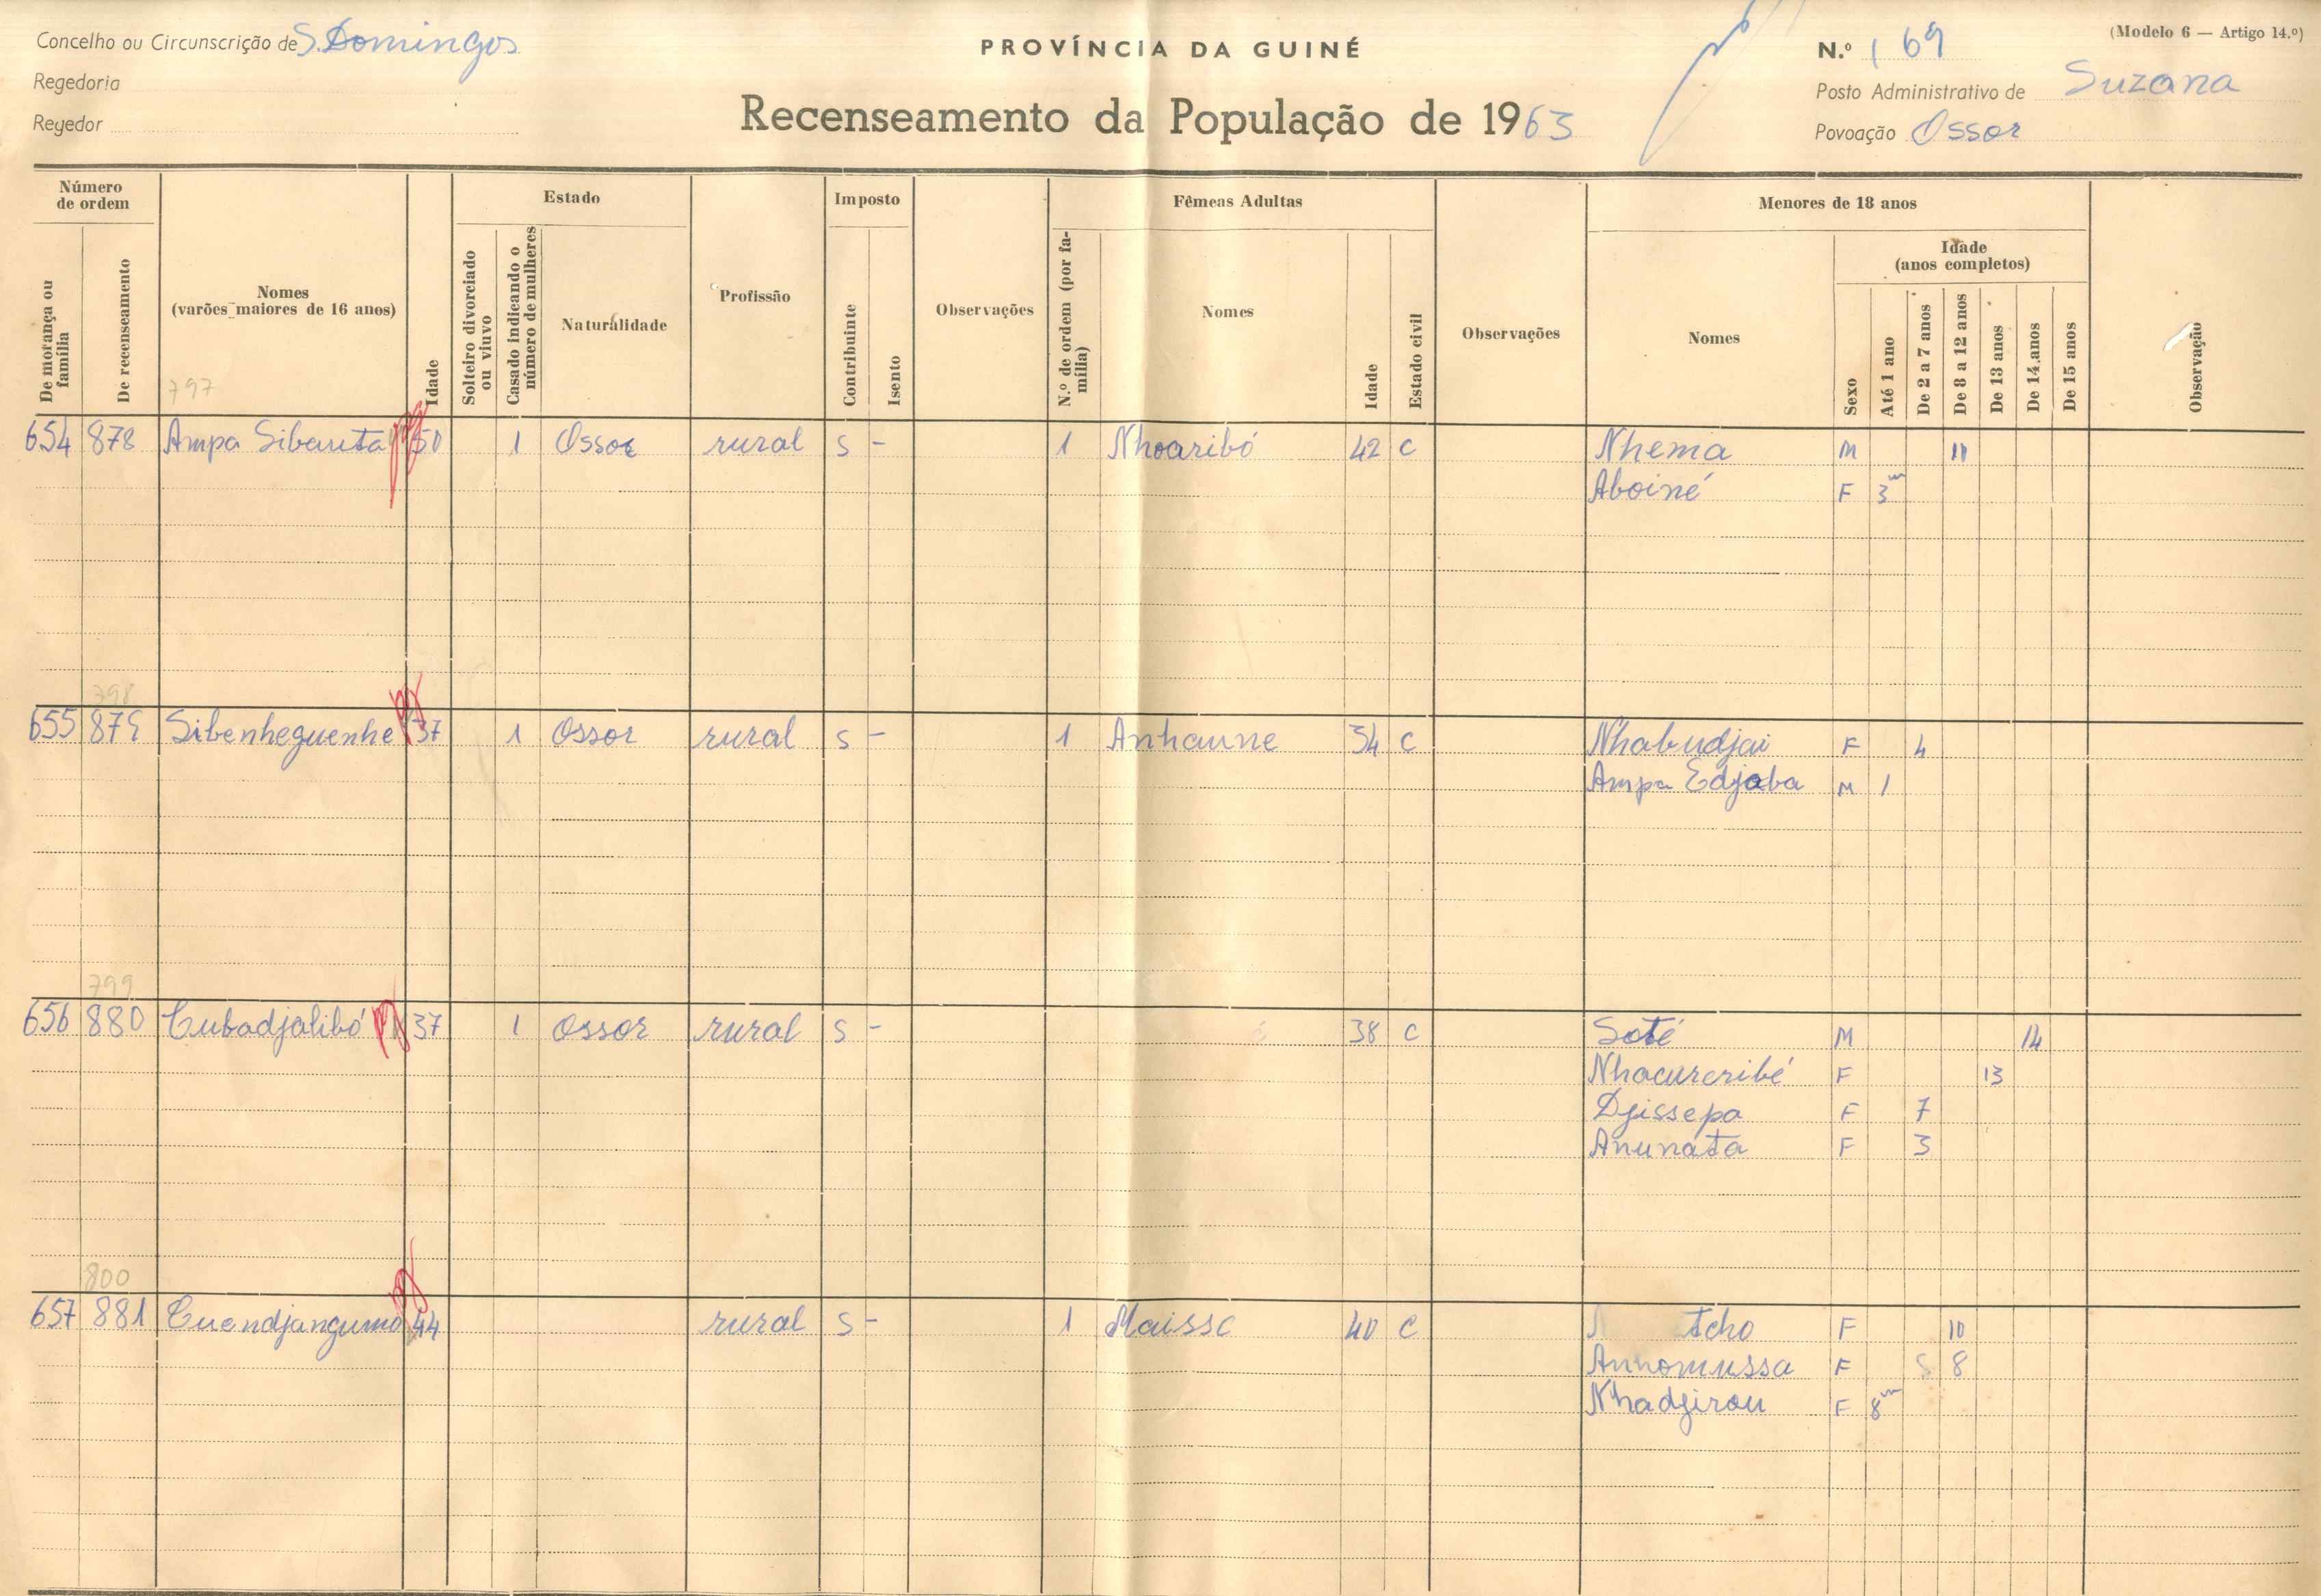 Concelho ou Circunscrição de S. Domingos
PROVÍNCIA DA GUINÉ
N.º 169
(Modelo 6 — Artigo 14.º)
Regedoria
Posto Administrativo de Suzana
Regedor
Recenseamento da População de 1963
Povoação Ossor
Número de ordem
Estado
Imposto
Fêmeas Adultas
Menores de 18 anos
De morança ou família
De recenseamento
Nomes
(varões maiores de 16 anos)
Idade
Solteiro divorciado ou viuvo
Casado indicando o número de mulheres
Naturalidade
Profissão
Contribuinte
Isento
Observações
N.º de ordem (por família)
Nomes
Idade
Estado civil
Observações
Nomes
Sexo
Idade
(anos completos)
Até 1 ano
De 2 a 7 anos
De 8 a 12 anos
De 13 anos
De 14 anos
De 15 anos
Observação
797
654 878 Ampa Sibauta 50 1 Ossor rural S - 1 Nhoaribó 42 C Nhema M 11
Aboiné F 3m
798
655 879 Sibenheguenhe 37 1 Ossor rural S - 1 Anhaune 34 C Nhabudjai F 4
Ampa Edjaba M 1
799
656 880 Cubadjalibó 37 1 Ossor rural S - 38 C Soté M 14
Nhacureribé F 13
Djissepa F 7
Anunata F 3
800
657 881 Cuendjangumo 44 rural S - 1 Maisse 40 C tcho F 10
Annomussa F 8
Nhadjirou F 8m